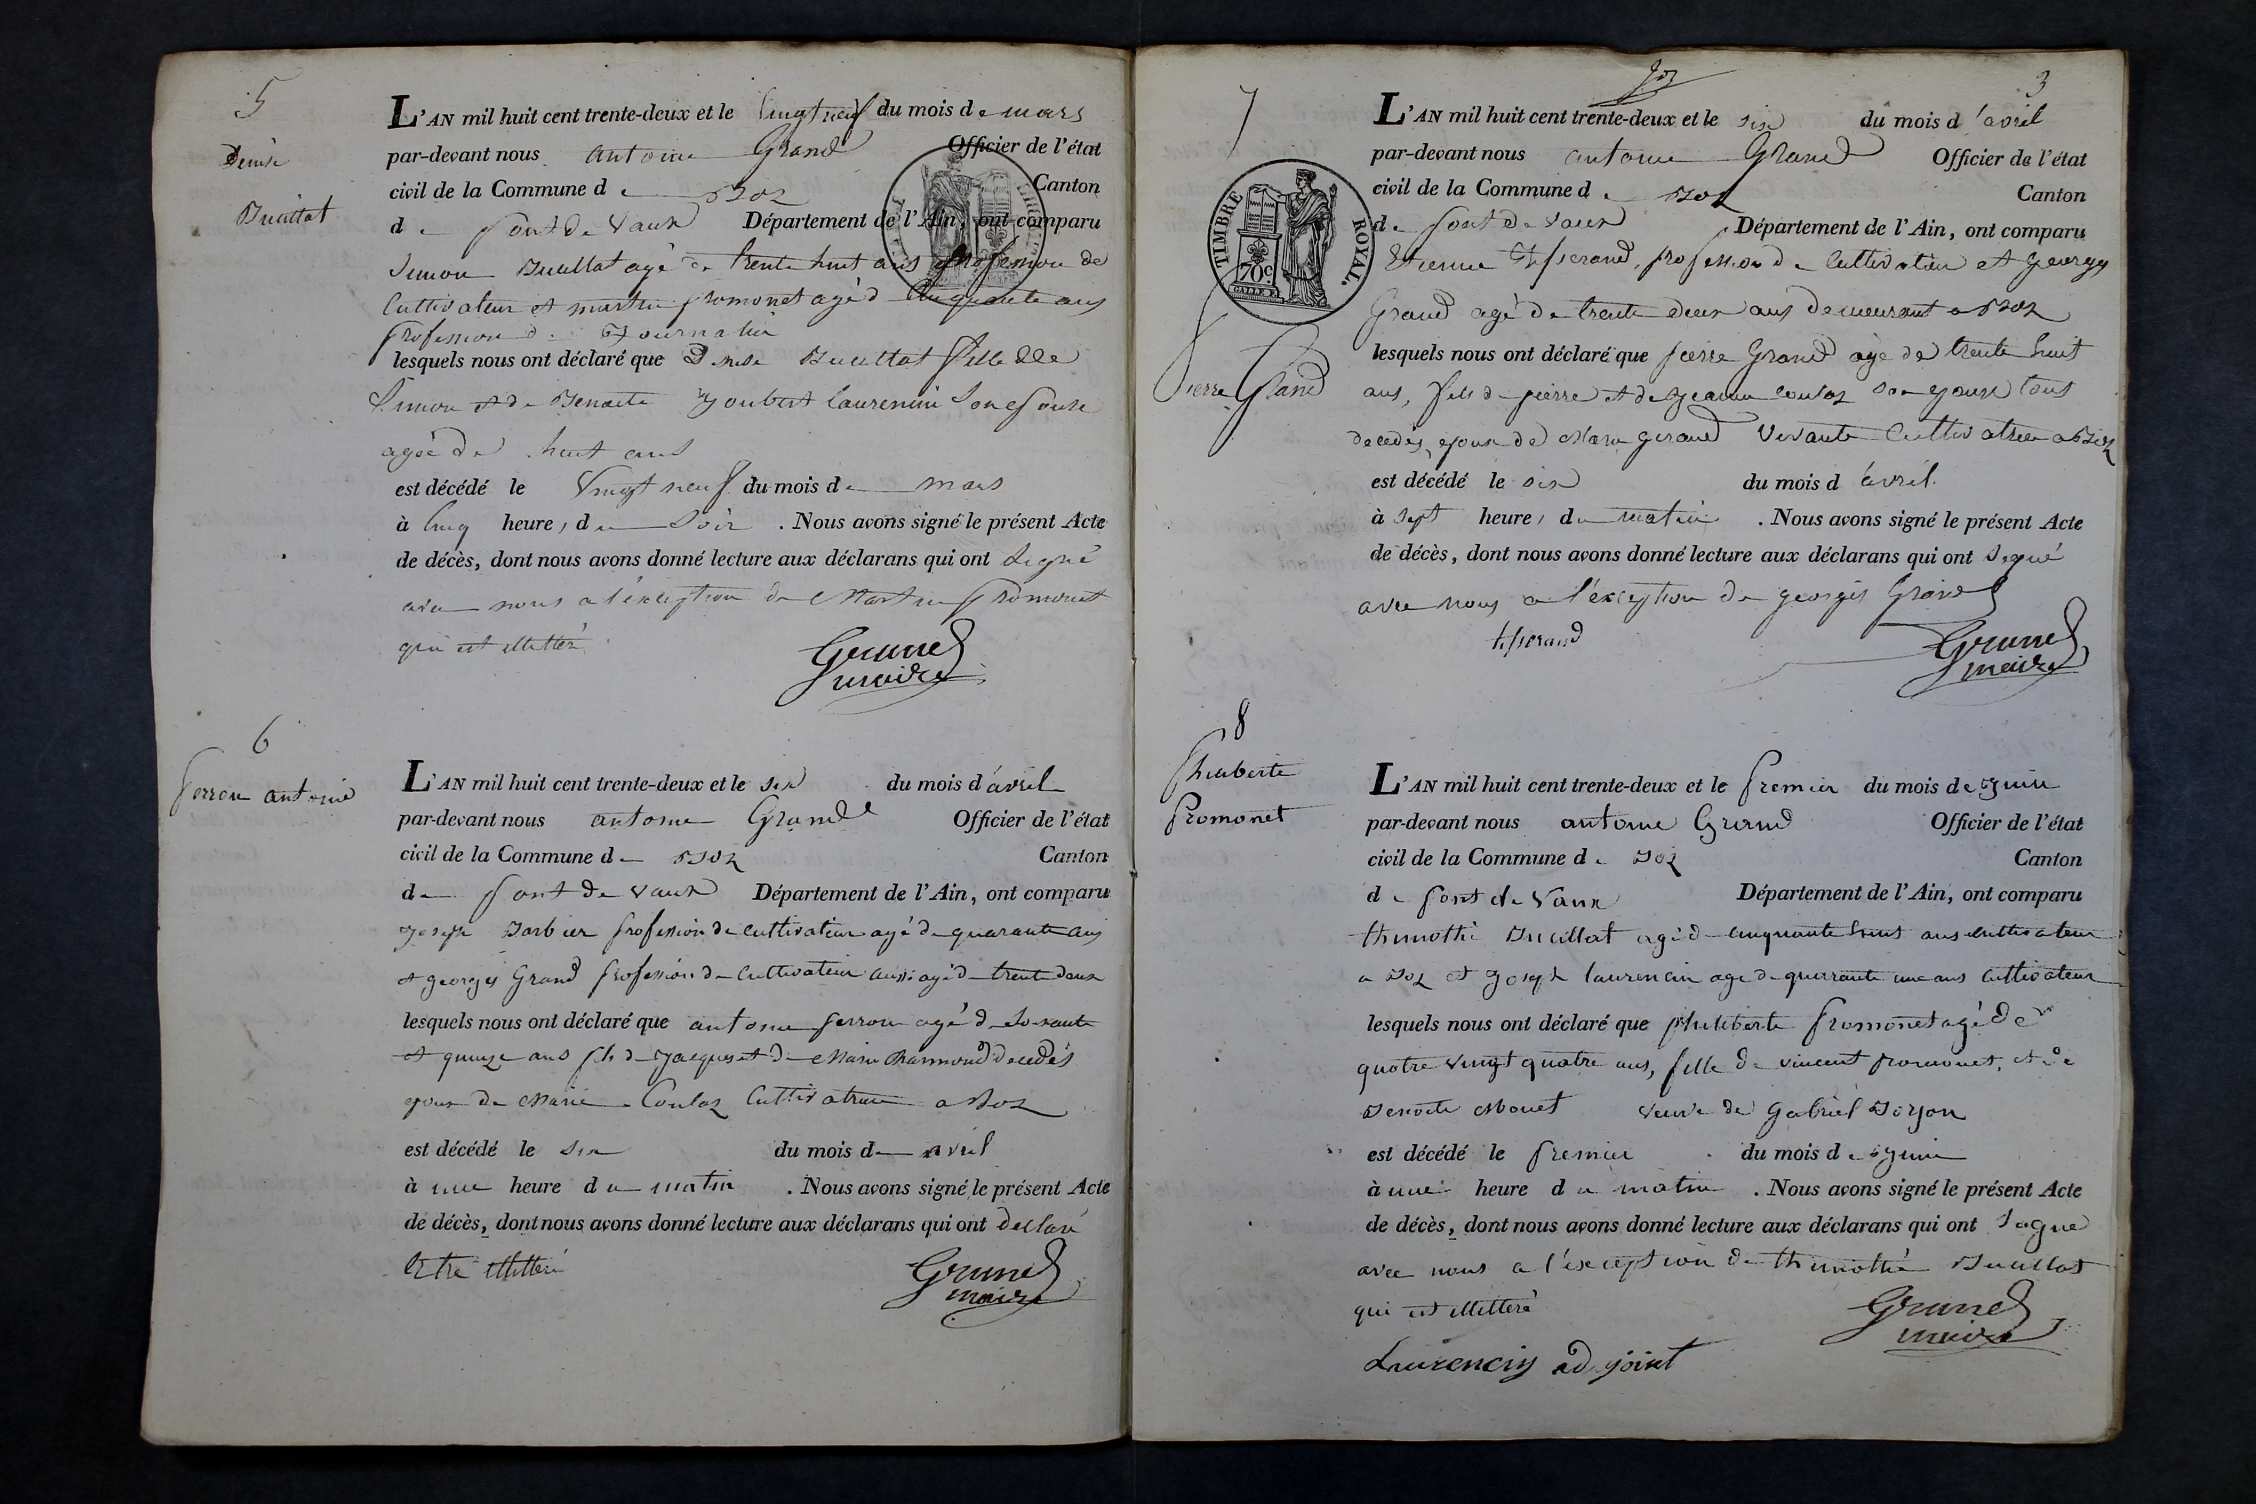 5
Denise
Ducillat
L'AN mil huit cent trente-deux et le Vingt neuf du mois de mars
par-devant nous antoine Grand Officier de l'état
civil de la Commune de Boz Canton
de pont de vaux Département de l'Ain, ont comparu
Simon Ducillat agé de trente huit ans profession de
Cultivateur et martin promonet agé de Cinquante ans
profession de Journalier
lesquels nous ont déclaré que Denise Ducillat fille de
Simon et de Benoite Joubert laurencin son epouse
agée de huit ans
est décédé le Vingt neuf du mois de mars
à Cinq heures du Soir . Nous avons signé le présent Acte
de décès, dont nous avons donné lecture aux déclarans qui ont Signé
avec nous a l'exception de Martin promonet
qui est illettéré
Grand
maire
6
ferron antoine
L'AN mil huit cent trente-deux et le six du mois d'avril
par-devant nous antoine Grand Officier de l'état
civil de la Commune de Boz Canton
de pont de vaux Département de l'Ain, ont comparu
Joseph Barbier profession de cultivateur agé de quarante ans
et georges Grand profession de Cultivateur aussi agé de trente deux
lesquels nous ont déclaré que antoine ferron agé de soixante
et quinze ans fils de Jacques et de Marie decedés
epoux de Marie Coulas Cultivatrice a Boz
est décédé le six du mois de avril
à une heure du matin . Nous avons signé le présent Acte
de décès, dont nous avons donné lecture aux déclarans qui ont declaré
Etre illitteré
Grand
maire
Boz
3
7
Pierre Grand
TIMBRE ROYAL.
70c
L'AN mil huit cent trente-deux et le six du mois d'avril
par-devant nous antoine Grand Officier de l'état
civil de la Commune de Boz Canton
de pont de vaux Département de l'Ain, ont comparu
Etienne Tisserand, profession de Cultivateur et Georges
Grand agé de trente deux ans demeurant a Boz
lesquels nous ont déclaré que pierre Grand agé de trente huit
ans, fils de pierre et de Jeanne coulas son epouse tous
decedés, epoux de Marie geraud Vivante Cultivatrice a Boz
est décédé le six du mois d'avril
à sept heures du matin . Nous avons signé le présent Acte
de décès, dont nous avons donné lecture aux déclarans qui ont Signé
avec nous a l'exception de georges Grand
tisserand
Grand
maire
8
Philiberte
Promonet
L'AN mil huit cent trente-deux et le premier du mois de Juin
par-devant nous antoine Grand Officier de l'état
civil de la Commune de Boz Canton
de pont de vaux Département de l'Ain, ont comparu
thimothé Ducillat agé de cinquante huit ans cultivateur
a Boz et Joseph laurencin age de quarrante une ans Cultivateur
lesquels nous ont déclaré que philiberte promonet agé de
quatre vingt quatre ans, fille de vincent promonet, et de
Benoite Monet veuve de Gabriel Doyon
est décédé le premier du mois de Juin
à une heure du matin . Nous avons signé le présent Acte
de décès, dont nous avons donné lecture aux déclarans qui ont Signe
avec nous a l'exception de thimothé Ducillat
qui est illitteré
Grand
maire
Laurencin adjoint